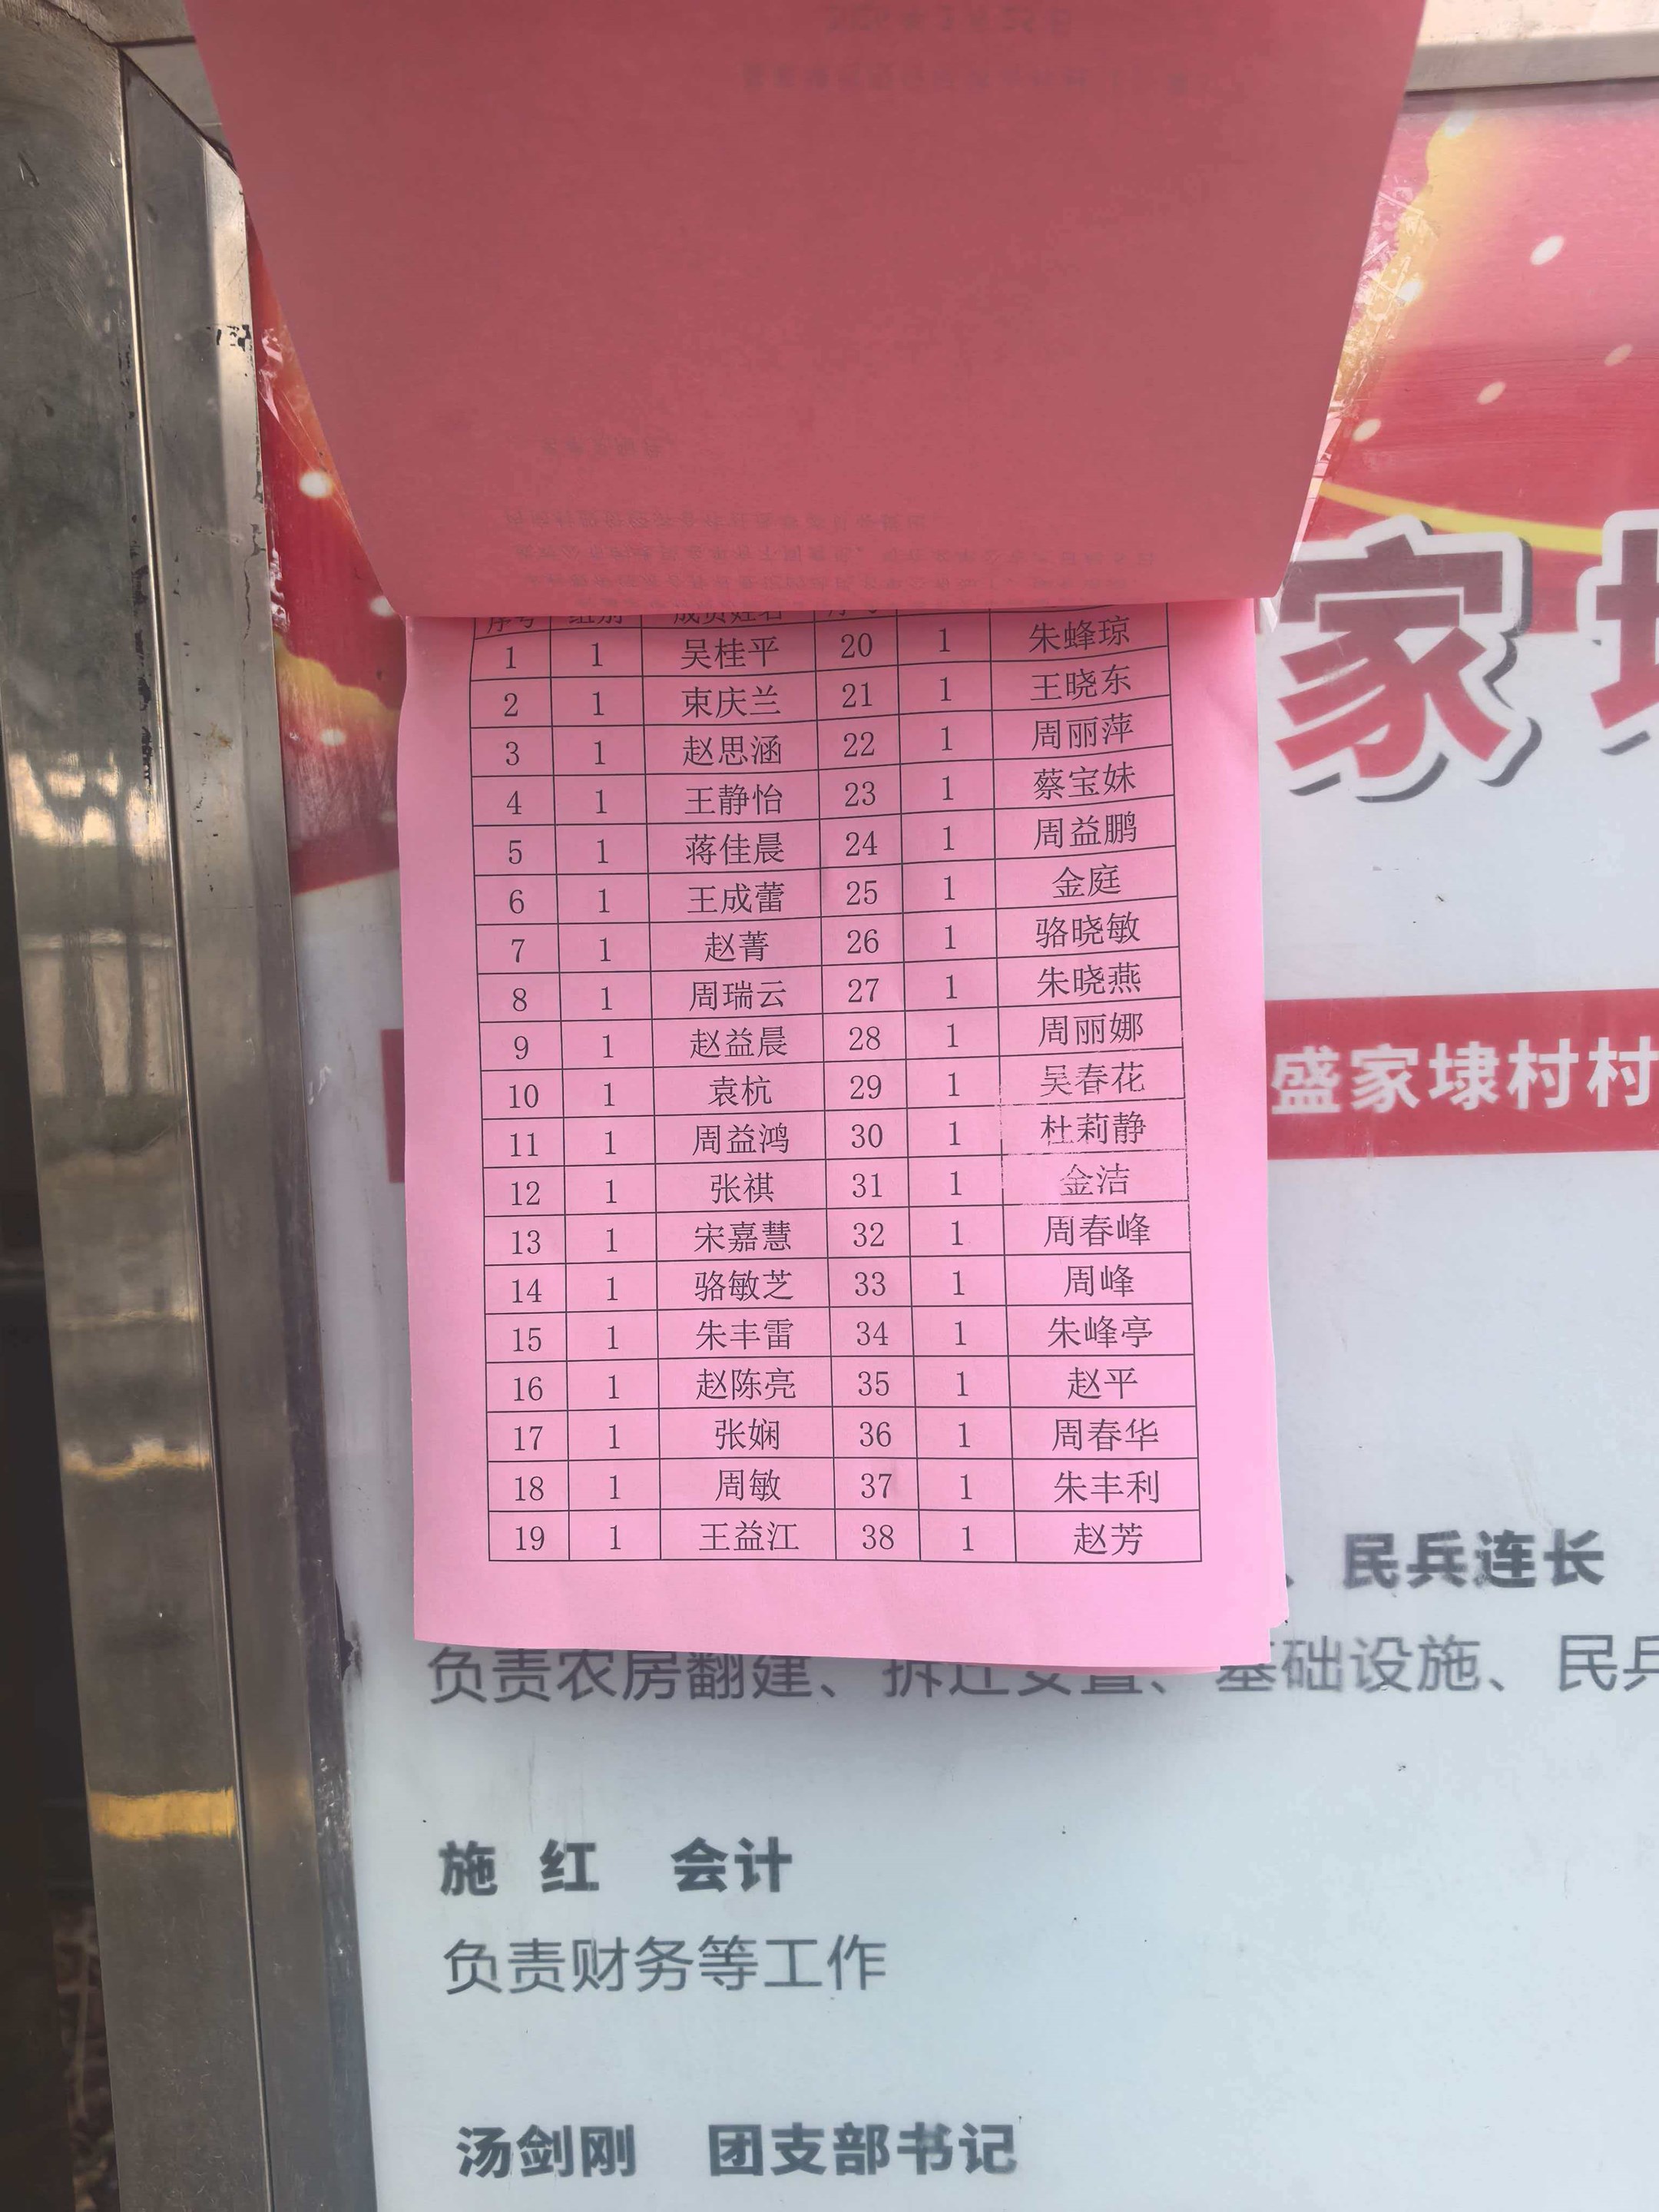 序号 组别 成员姓名 序号
1 1 吴桂平 20 1 朱蜂琼
2 1 束庆兰 21 1 王晓东
3 1 赵思涵 22 1 周丽萍
4 1 王静怡 23 1 蔡宝妹
5 1 蒋佳晨 24 1 周益鹏
6 1 王成蕾 25 1 金庭
7 1 赵菁 26 1 骆晓敏
8 1 周瑞云 27 1 朱晓燕
9 1 赵益晨 28 1 周丽娜
10 1 袁杭 29 1 吴春花
11 1 周益鸿 30 1 杜莉静
12 1 张祺 31 1 金洁
13 1 宋嘉慧 32 1 周春峰
14 1 骆敏芝 33 1 周峰
15 1 朱丰雷 34 1 朱峰亭
16 1 赵陈亮 35 1 赵平
17 1 张娴 36 1 周春华
18 1 周敏 37 1 朱丰利
19 1 王益江 38 1 赵芳
家
盛家埭村村
、民兵连长
负责农房翻建、拆迁安置、基础设施、民兵
施 红 会计
负责财务等工作
汤剑刚 团支部书记